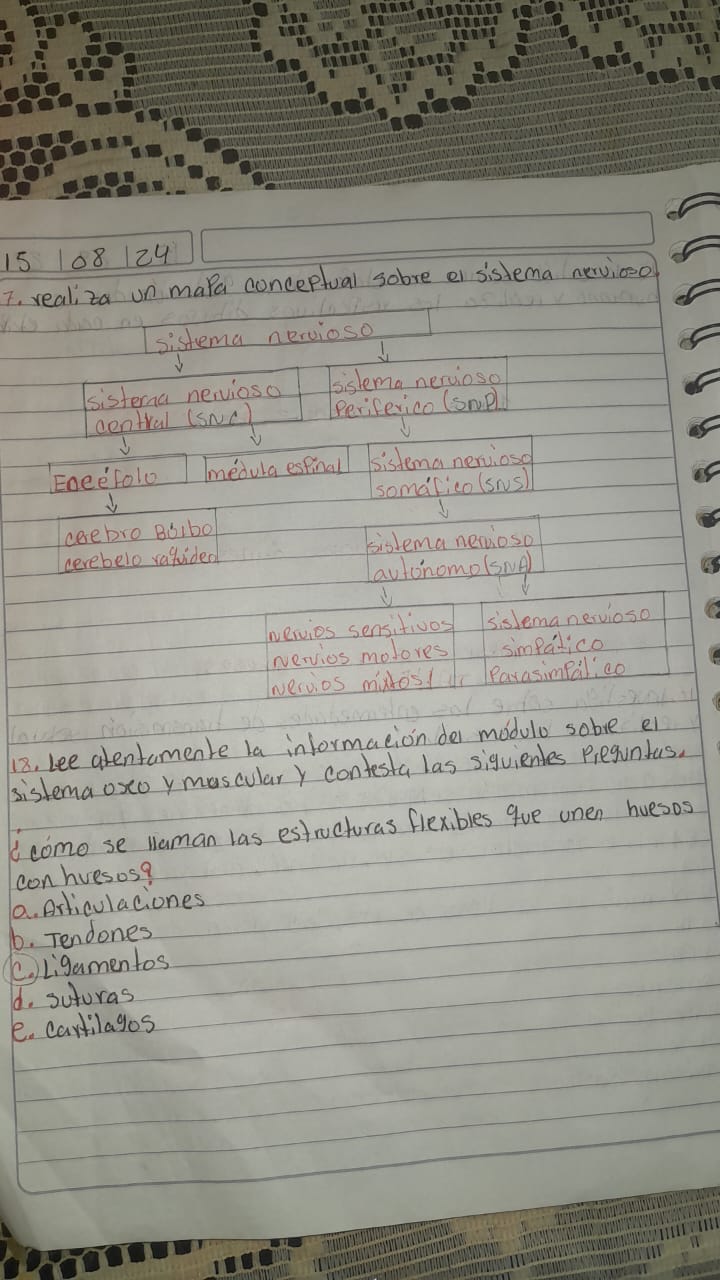 15 | 08 | 24
7. realiza un mapa conceptual sobre el sistema nervioso
sistema nervioso
sistema nervioso
central (SNC)
sistema nervioso
Periferico (SNP).
Eneéfolo
médula espinal
sistema nervioso
somático (SNS)
cerebro Bulbo
cerebelo raquideo
sistema nervioso
autónomo (SNA)
nervios sensitivos
nervios motores
nervios mixtos
sistema nervioso
simpático
Parasimpático
18. Lee atentamente la información del módulo sobre el
sistema oseo y muscular y contesta las siguientes Preguntas.
¿cómo se llaman las estructuras flexibles que unen huesos
con huesos?
a. Articulaciones
b. Tendones
c. Ligamentos
d. suturas
e. cartilagos